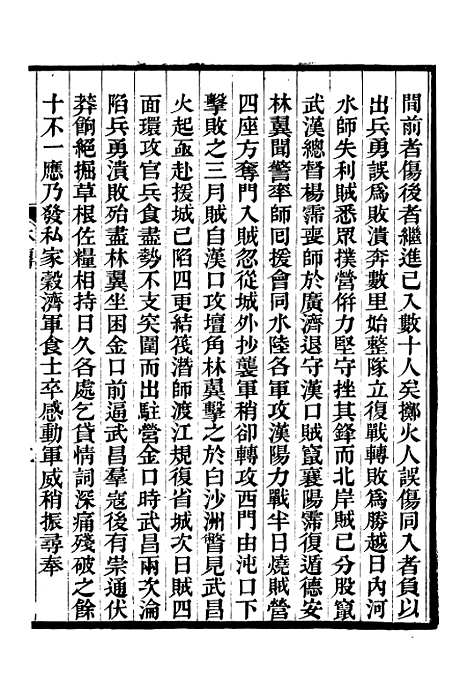 間前者傷後者繼進已入數十人矣擲火人誤傷同入者負以
出兵勇誤爲敗潰奔數里始整隊立復戰轉敗爲勝越日內河
水師失利賊悉眾撲營倂力堅守挫其鋒而北岸賊已分股竄
武漢總督楊霈喪師於廣濟退守漢口賊竄襄陽霈復遁德安
林翼聞警率師囘援會同水陸各軍攻漢陽力戰半日燒賊營
四座方奪門入賊忽從城外抄襲軍稍卻轉攻西門由沌口下
擊敗之三月賊自漢口攻壇角林翼擊之於白沙洲瞥見武昌
火起亟赴援城已陷四更結筏潛師渡江規復省城次日賊四
面環攻官兵食盡勢不支突圍而出駐營金口時武昌兩次淪
陷兵勇潰敗殆盡林翼坐困金口前逼武昌羣寇後有崇通伏
莽餉絕掘草根佐糧相持日久各處乞貸情詞深痛殘破之餘
十不一應乃發私家穀濟軍食士卒感動軍威稍振尋奉